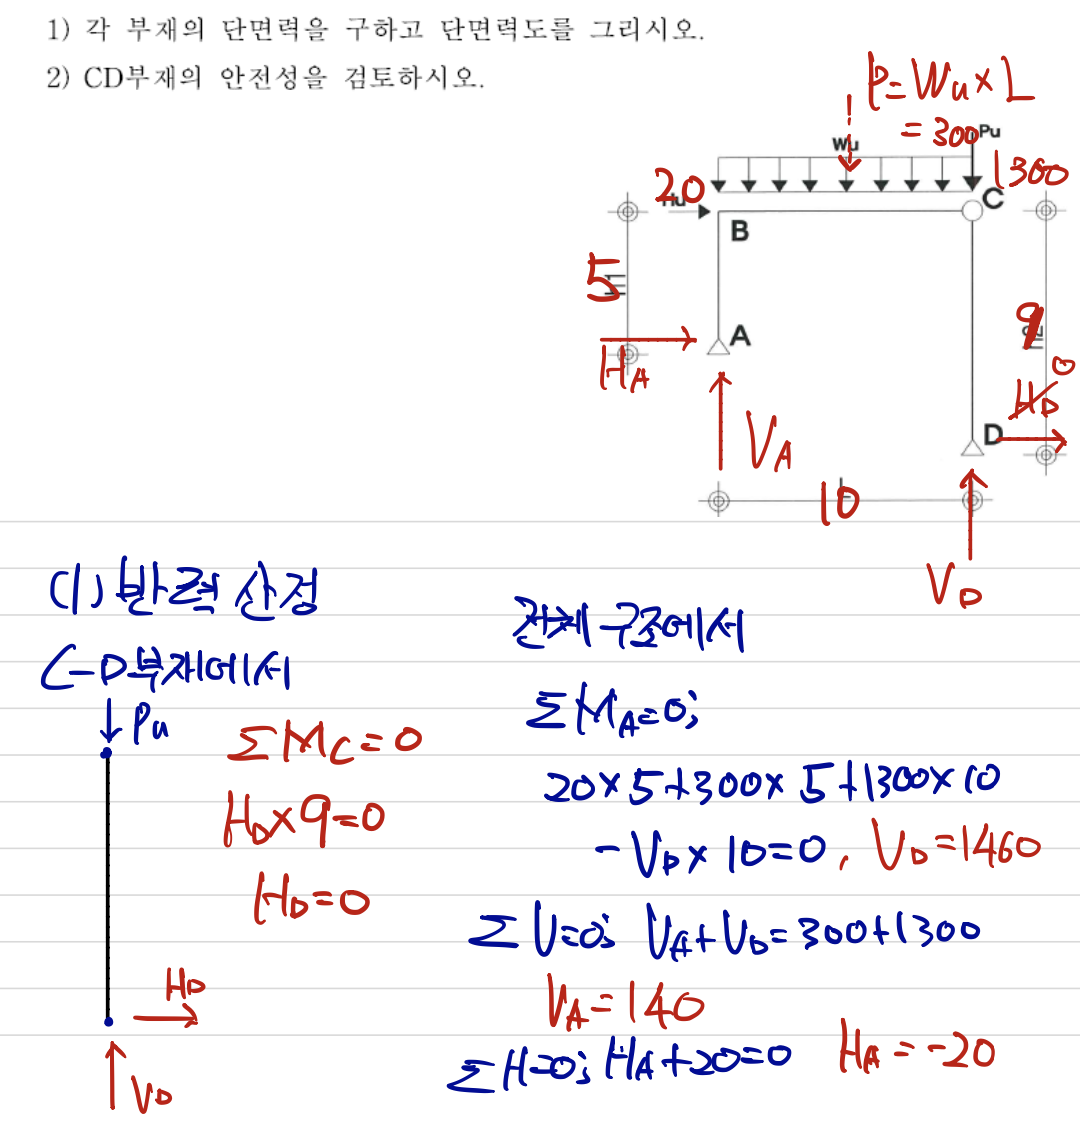 1) 각 부재의 단면력을 구하고 단면력도를 그리시오.
2) CD부재의 안전성을 검토하시오.
P=Wu×L
=300
Pu
Wu
1300
20
Hu
C
B
5
A
9
HA
0
HD
D
VA
10
VD
(1) 반력 산정
C-D부재에서
Pu
ΣMC=0
HD×9=0
HD=0
HD
VD
전체 구조에서
ΣMA=0;
20×5+300×5+1300×10
-VD×10=0, VD=1460
ΣV=0; VA+VD=300+1300
VA=140
ΣH=0; HA+20=0 HA=-20